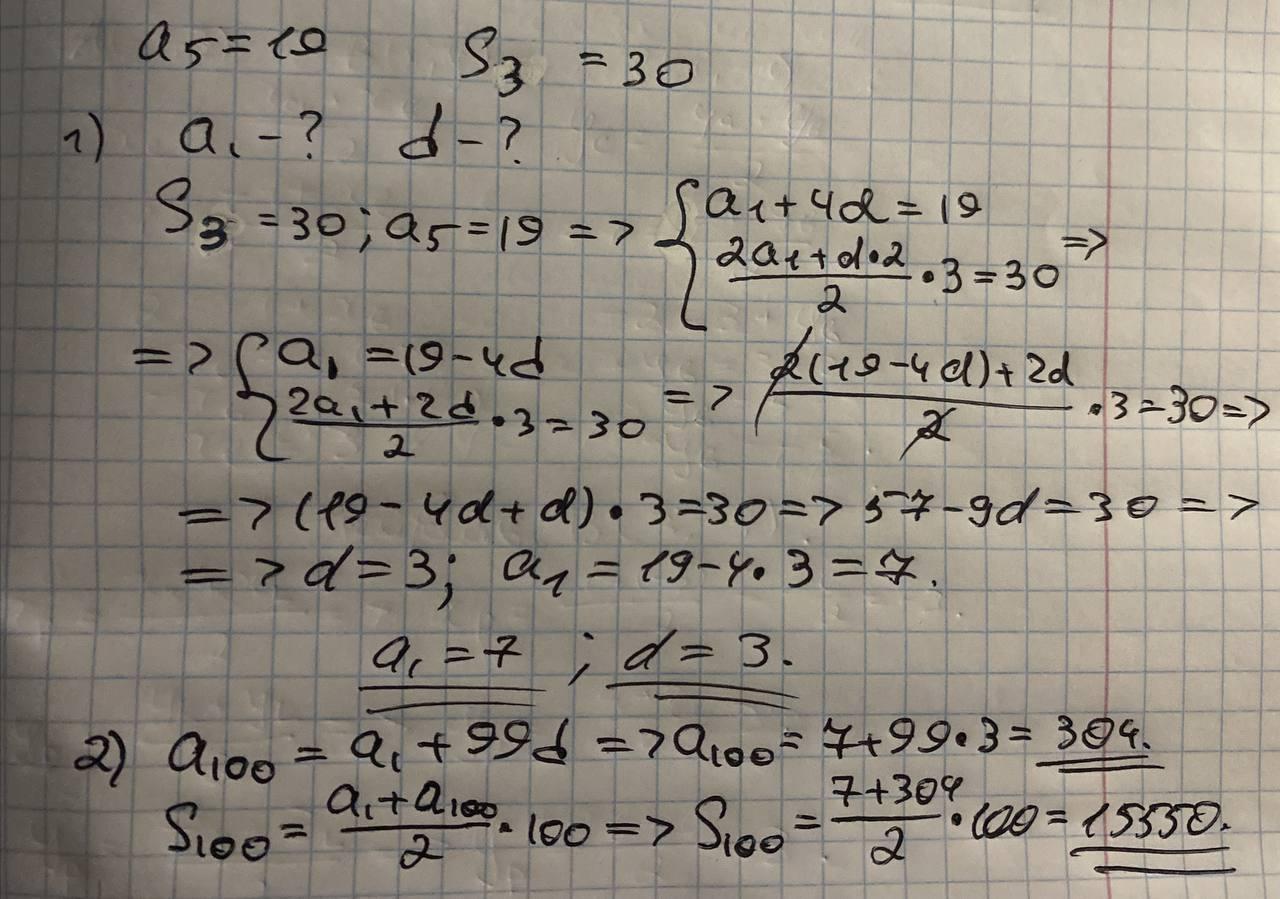 a₅ = 19 S₃ = 30
1) a₁ - ? d - ?
S₃ = 30; a₅ = 19 => { a₁ + 4d = 19
(2a₁ + d•2)/2 • 3 = 30 =>
=> { a₁ = 19 - 4d
(2a₁ + 2d)/2 • 3 = 30 => (2(19 - 4d) + 2d)/2 • 3 = 30 =>
=> (19 - 4d + d) • 3 = 30 => 57 - 9d = 30 =>
=> d = 3; a₁ = 19 - 4 • 3 = 7.
a₁ = 7 ; d = 3.
2) a₁₀₀ = a₁ + 99d => a₁₀₀ = 7 + 99 • 3 = 304.
S₁₀₀ = (a₁ + a₁₀₀)/2 • 100 => S₁₀₀ = (7 + 304)/2 • 100 = 15550.